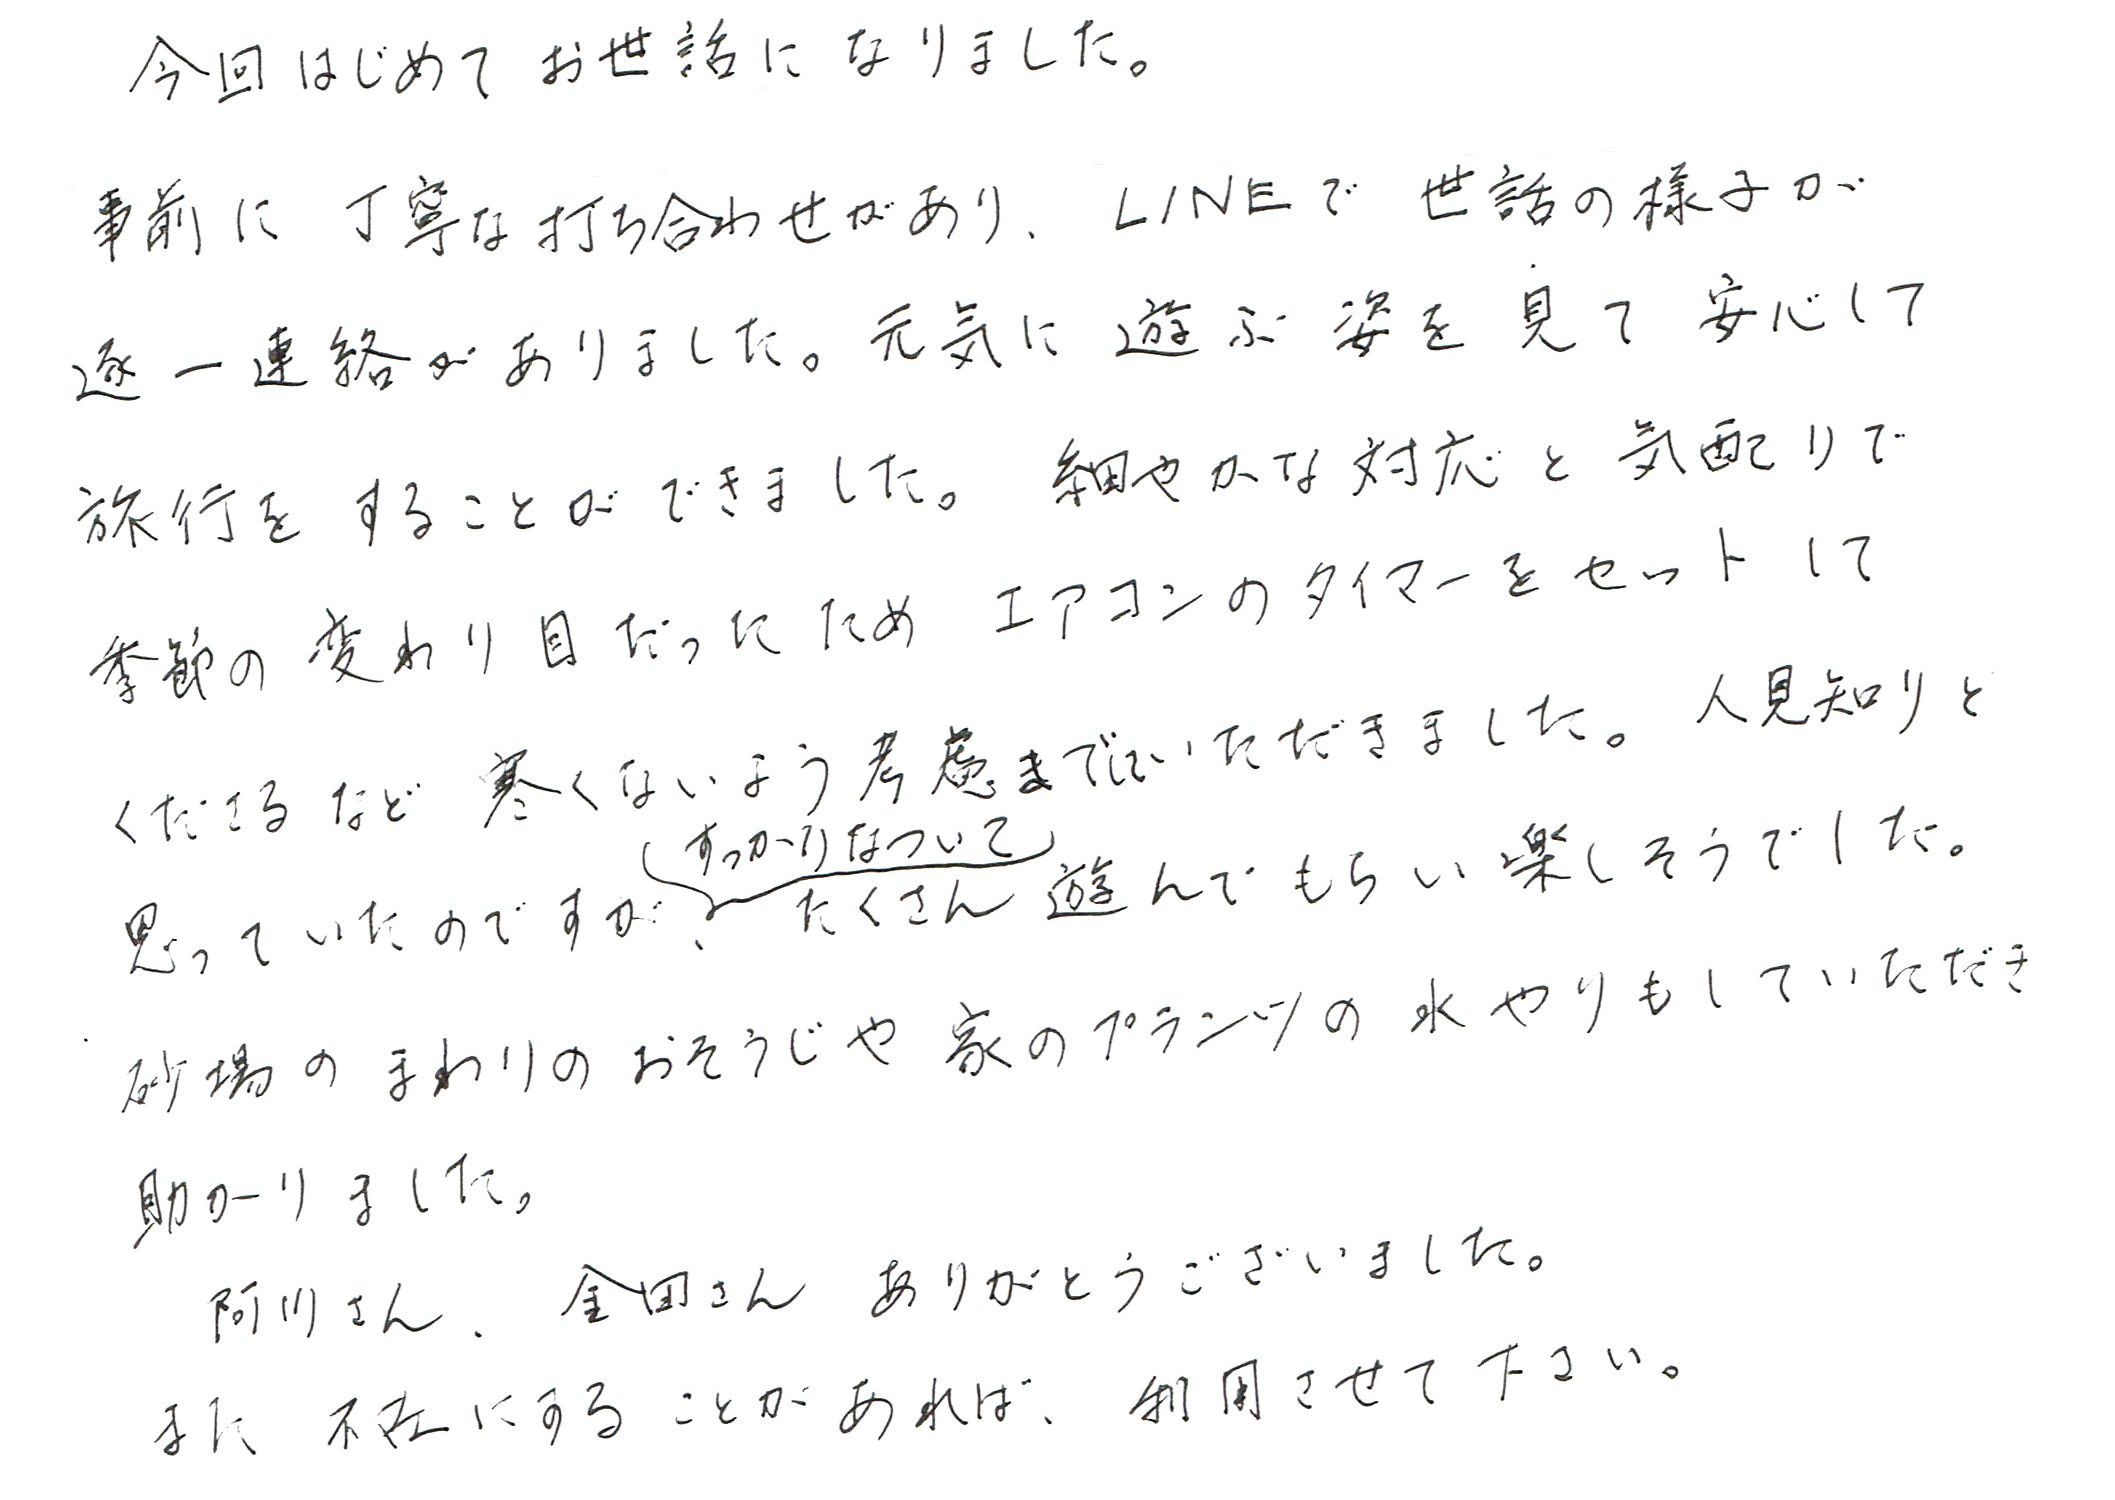 今回はじめてお世話になりました。
事前に丁寧な打ち合わせがあり、LINEで世話の様子が
逐一連絡がありました。元気に遊ぶ姿を見て安心して
旅行をすることができました。細やかな対応と気配りで
季節の変わり目だったためエアコンのタイマーをセットして
くださるなど寒くないよう考慮までしていただきました。人見知りと
思っていたのですが、すっかりなついてたくさん遊んでもらい楽しそうでした。
砂場のまわりのおそうじや家のプランツの水やりもしていただき
助かりました。
阿川さん、金田さんありがとうございました。
また不在にすることがあれば、利用させて下さい。